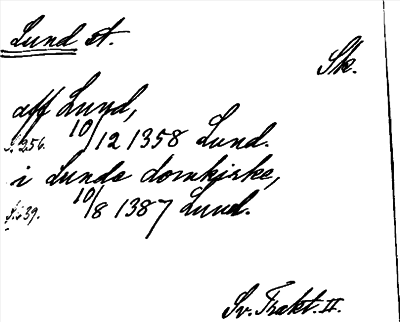 Lund st.
Sk.
aff Lund,
s. 256. 10/12 1358 Lund.
i Lunde domkirke,
s. 439. 10/8 1387 Lund.
Sv. Trakt. II.